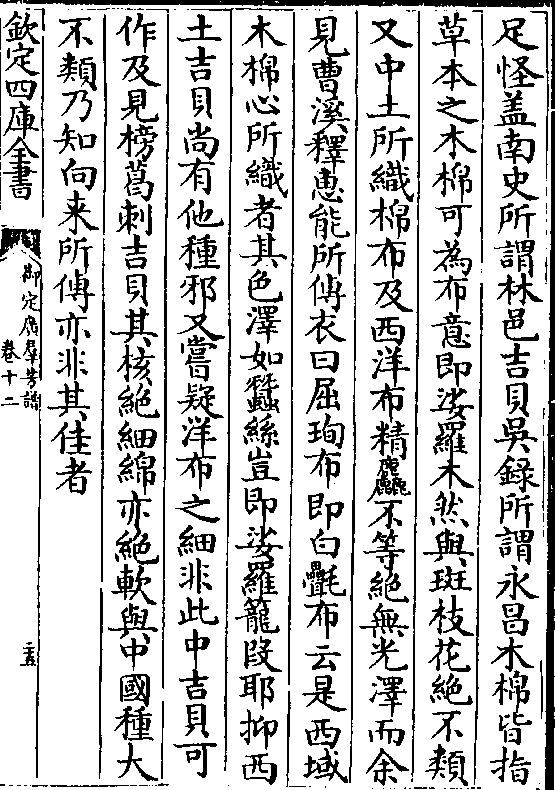 足怪盖南史所謂林邑吉貝吳錄所謂永昌木棉皆指
草本之木棉可為布意即娑羅木然與斑枝花絶不類
又中土所織棉布及西洋布精麤不等絶無光澤而余
見曹溪釋惠能所傳衣曰屈眴布即白㲲布云是西域
木棉心所織者其色澤如蠶絲豈即娑羅籠段耶抑西
土吉貝尚有他種邪又嘗疑洋布之細非此中吉貝可
作及見榜葛刺吉貝其核絶細綿亦絶軟與中國種大
不類乃知向来所傳亦非其佳者
欽定四庫全書
御定廣羣芳譜
卷十二
二五